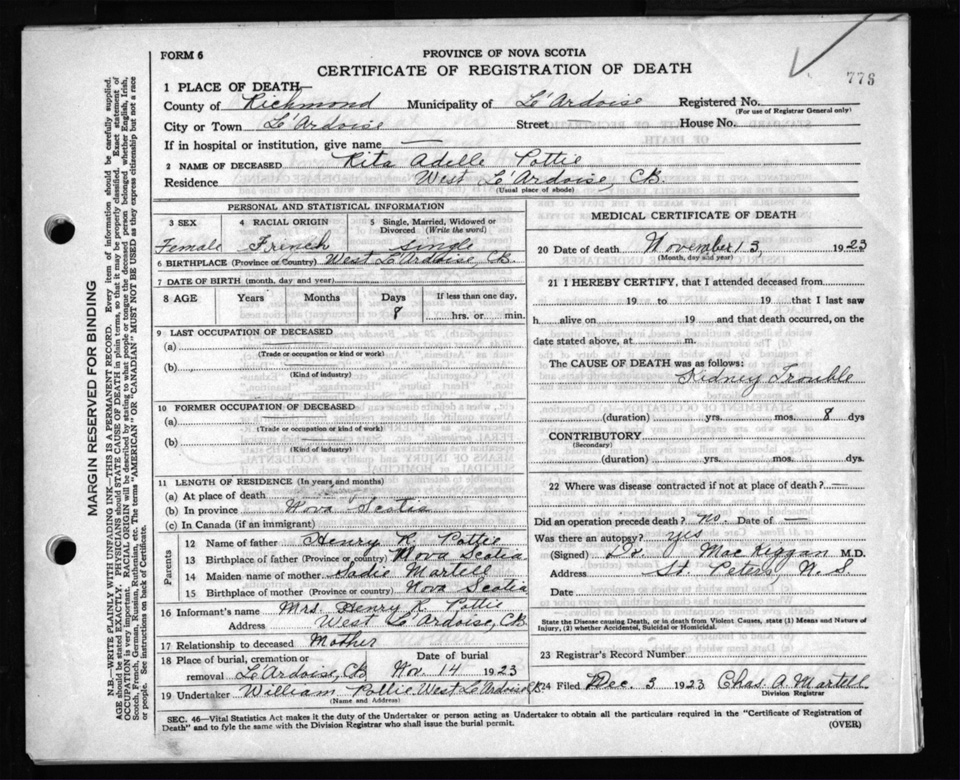 FORM 6
PROVINCE OF NOVA SCOTIA
CERTIFICATE OF REGISTRATION OF DEATH
778
1 PLACE OF DEATH—
County of Richmond Municipality of Le'Ardoise Registered No.
(For use of Registrar General only)
City or Town Le'Ardoise Street House No.
If in hospital or institution, give name —
2 NAME OF DECEASED Rita Adelle Pottie
Residence West Le'Ardoise, CB.
(Usual place of abode)
PERSONAL AND STATISTICAL INFORMATION
3 SEX 4 RACIAL ORIGIN 5 Single, Married, Widowed or Divorced (Write the word)
Female French Single
6 BIRTHPLACE (Province or Country) West Le'Ardoise, CB.
7 DATE OF BIRTH (month, day and year)
8 AGE Years Months Days If less than one day,
8 hrs. or min.
9 LAST OCCUPATION OF DECEASED
(a)
(Trade or occupation or kind or work)
(b)
(Kind of industry)
10 FORMER OCCUPATION OF DECEASED
(a)
(Trade or occupation or kind or work)
(b)
(Kind of industry)
11 LENGTH OF RESIDENCE (In years and months)
(a) At place of death
(b) In province Nova Scotia
(c) In Canada (if an immigrant)
Parents
12 Name of father Henry R. Pottie
13 Birthplace of father (Province or country) Nova Scotia
14 Maiden name of mother Sadie Martell
15 Birthplace of mother (Province or country) Nova Scotia
16 Informant's name Mrs. Henry R Pottie
Address West Le'Ardoise, CB
17 Relationship to deceased Mother
18 Place of burial, cremation or removal Le'Ardoise, CB Date of burial Nov. 14 1923
19 Undertaker William Pottie West Le'Ardoise
(Name and Address)
MEDICAL CERTIFICATE OF DEATH
20 Date of death November 13 1923
(Month, day and year)
21 I HEREBY CERTIFY, that I attended deceased from
19 to 19 that I last saw
h alive on 19 and that death occurred, on
date stated above, at m.
The CAUSE OF DEATH was as follows:
Kidney Trouble
(duration) yrs. mos. 8 dys
CONTRIBUTORY
(Secondary)
(duration) yrs. mos. dys
22 Where was disease contracted if not at place of death? —
Did an operation precede death? no. Date of —
Was there an autopsy? yes
(Signed) Dr. MacKiggan M.D.
Address St. Peters, N. S.
Date
State the Disease causing Death, or in death from Violent Causes, state (1) Means and Nature of
Injury, (2) whether Accidental, Suicidal or Homicidal.
23 Registrar's Record Number
24 Filed Dec. 3 1923 Chas A. Martell
Division Registrar
SEC. 46—Vital Statistics Act makes it the duty of the Undertaker or person acting as Undertaker to obtain all the particulars required in the "Certificate of Registration of
Death" and to fyle the same with the Division Registrar who shall issue the burial permit.
(OVER)
MARGIN RESERVED FOR BINDING
N.B.—WRITE PLAINLY WITH UNFADING INK—THIS IS A PERMANENT RECORD. Every item of information should be carefully supplied.
AGE should be stated EXACTLY. PHYSICIANS should STATE CAUSE OF DEATH in plain terms, so that it may be properly classified. Exact statement of
OCCUPATION is very important. RACIAL ORIGIN will be described by stating to what people or tongue the deceased person belonged whether English, Irish,
Scotch, French, German, Russian, Ruthenian, etc. The terms "AMERICAN" OR "CANADIAN" MUST NOT BE USED as they express citizenship but not a race
or people. See instructions on back of Certificate.